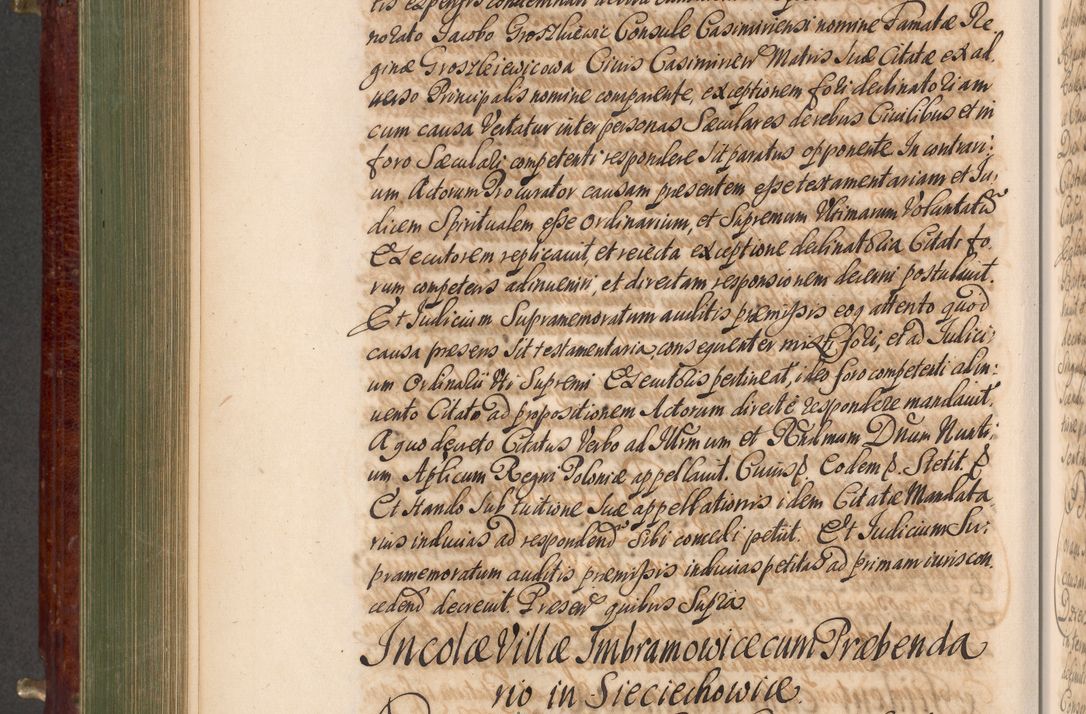 norato Jacobo Groszkiewic Consule Casimiriensi nomine Famatæ Re
ginæ Groszkiewicowa Civis Casimirien Matris Suæ Citatæ ex ad
verso Principalis nomine comparente, exceptionem fori declinatoriam
cum causa Vertatur inter personas Sæculares de rebus Civilibus et in
foro Sæculari competenti respondere Sit paratus opponente In contrari:
um Actorum Procurator causam præsentem esse testamentariam et Ju,
dicem Spiritualem esse Ordinarium, et Supremum Ultimarum Voluntatũ
Executorem replicavit, et reiecta exceptione declinatoria Citati fo,
rum competens adinveniri, et directam responsionem decerni postulavit.
Et Judicium Supramemoratum auditis præmissis eoq attento quod
causa præsens Sit testamentaria, consequenter mixti fori, et ad Judici:
um Ordinarii Uti Supremi Executoris pertineat, ideo foro competenti adin:
vento Citato ad propositionem Actorum directe respondere mandavit.
A quo decreto Citatus Verbo ad Illrmum et Rndmum Dnum Nunti:
um Aplicum Regni Poloniæ appellavit. Cuius p. Eodem p. Stetit. p
Et Stando Sub tuitione Suæ appellationis idem Citatæ Mandata
rius inducias ad respondend Sibi concedi petiit. Et Judicium Su:
pramemoratum auditis præmissis inducias petitas ad primam iuris con,
cedend decrevit. Presen quibus Supra
Incolæ Villæ Imbramowice cum Præbenda
rio in Sieciechowice.